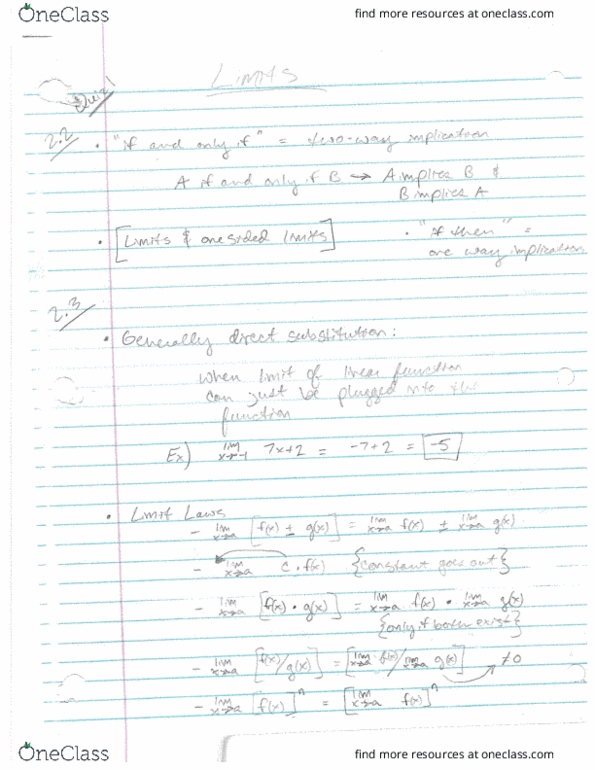 OneClass
find more resources at oneclass.com
Limits
Quiz 1
2.2
• "if and only if" = two-way implication
A if and only if B → A implies B &
B implies A
• [Limits & one sided limits]
• "if then" =
one way implication
2.3
• Generally direct substitution:
when limit of linear function
can just be plugged into the
function
Ex) lim x→-1 7x+2 = -7+2 = -5
• Limit Laws
- lim x→a [f(x) ± g(x)] = lim x→a f(x) ± lim x→a g(x)
- lim x→a c • f(x) {constant goes out}
- lim x→a [f(x) • g(x)] = lim x→a f(x) • lim x→a g(x)
{only if both exist}
- lim x→a [f(x)/g(x)] = [lim x→a f(x)/lim x→a g(x)] → ≠0
- lim x→a [f(x)]^n = [lim x→a f(x)]^n
OneClass
find more resources at oneclass.com